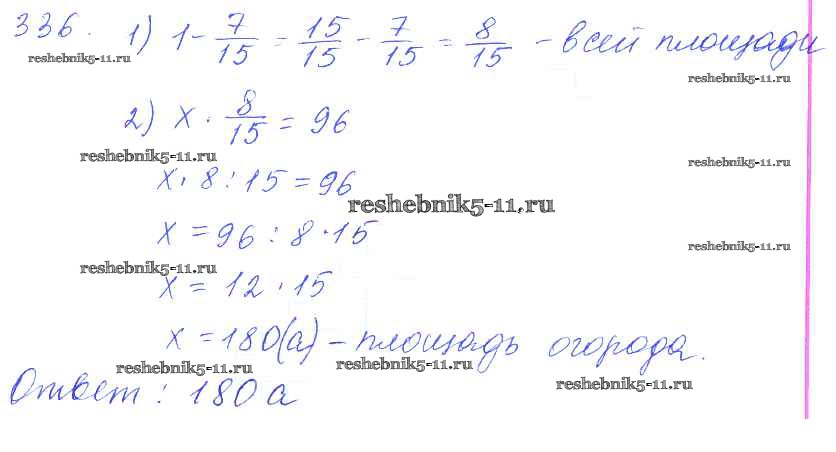 336. 1) 1 - 7/15 = 15/15 - 7/15 = 8/15 - всей площади
reshebnik5-11.ru reshebnik5-11.ru
2) x · 8/15 = 96
reshebnik5-11.ru reshebnik5-11.ru
x · 8 : 15 = 96
reshebnik5-11.ru
x = 96 : 8 · 15
reshebnik5-11.ru
reshebnik5-11.ru
x = 12 · 15
x = 180(а) - площадь огорода.
reshebnik5-11.ru reshebnik5-11.ru reshebnik5-11.ru
Ответ: 180 а